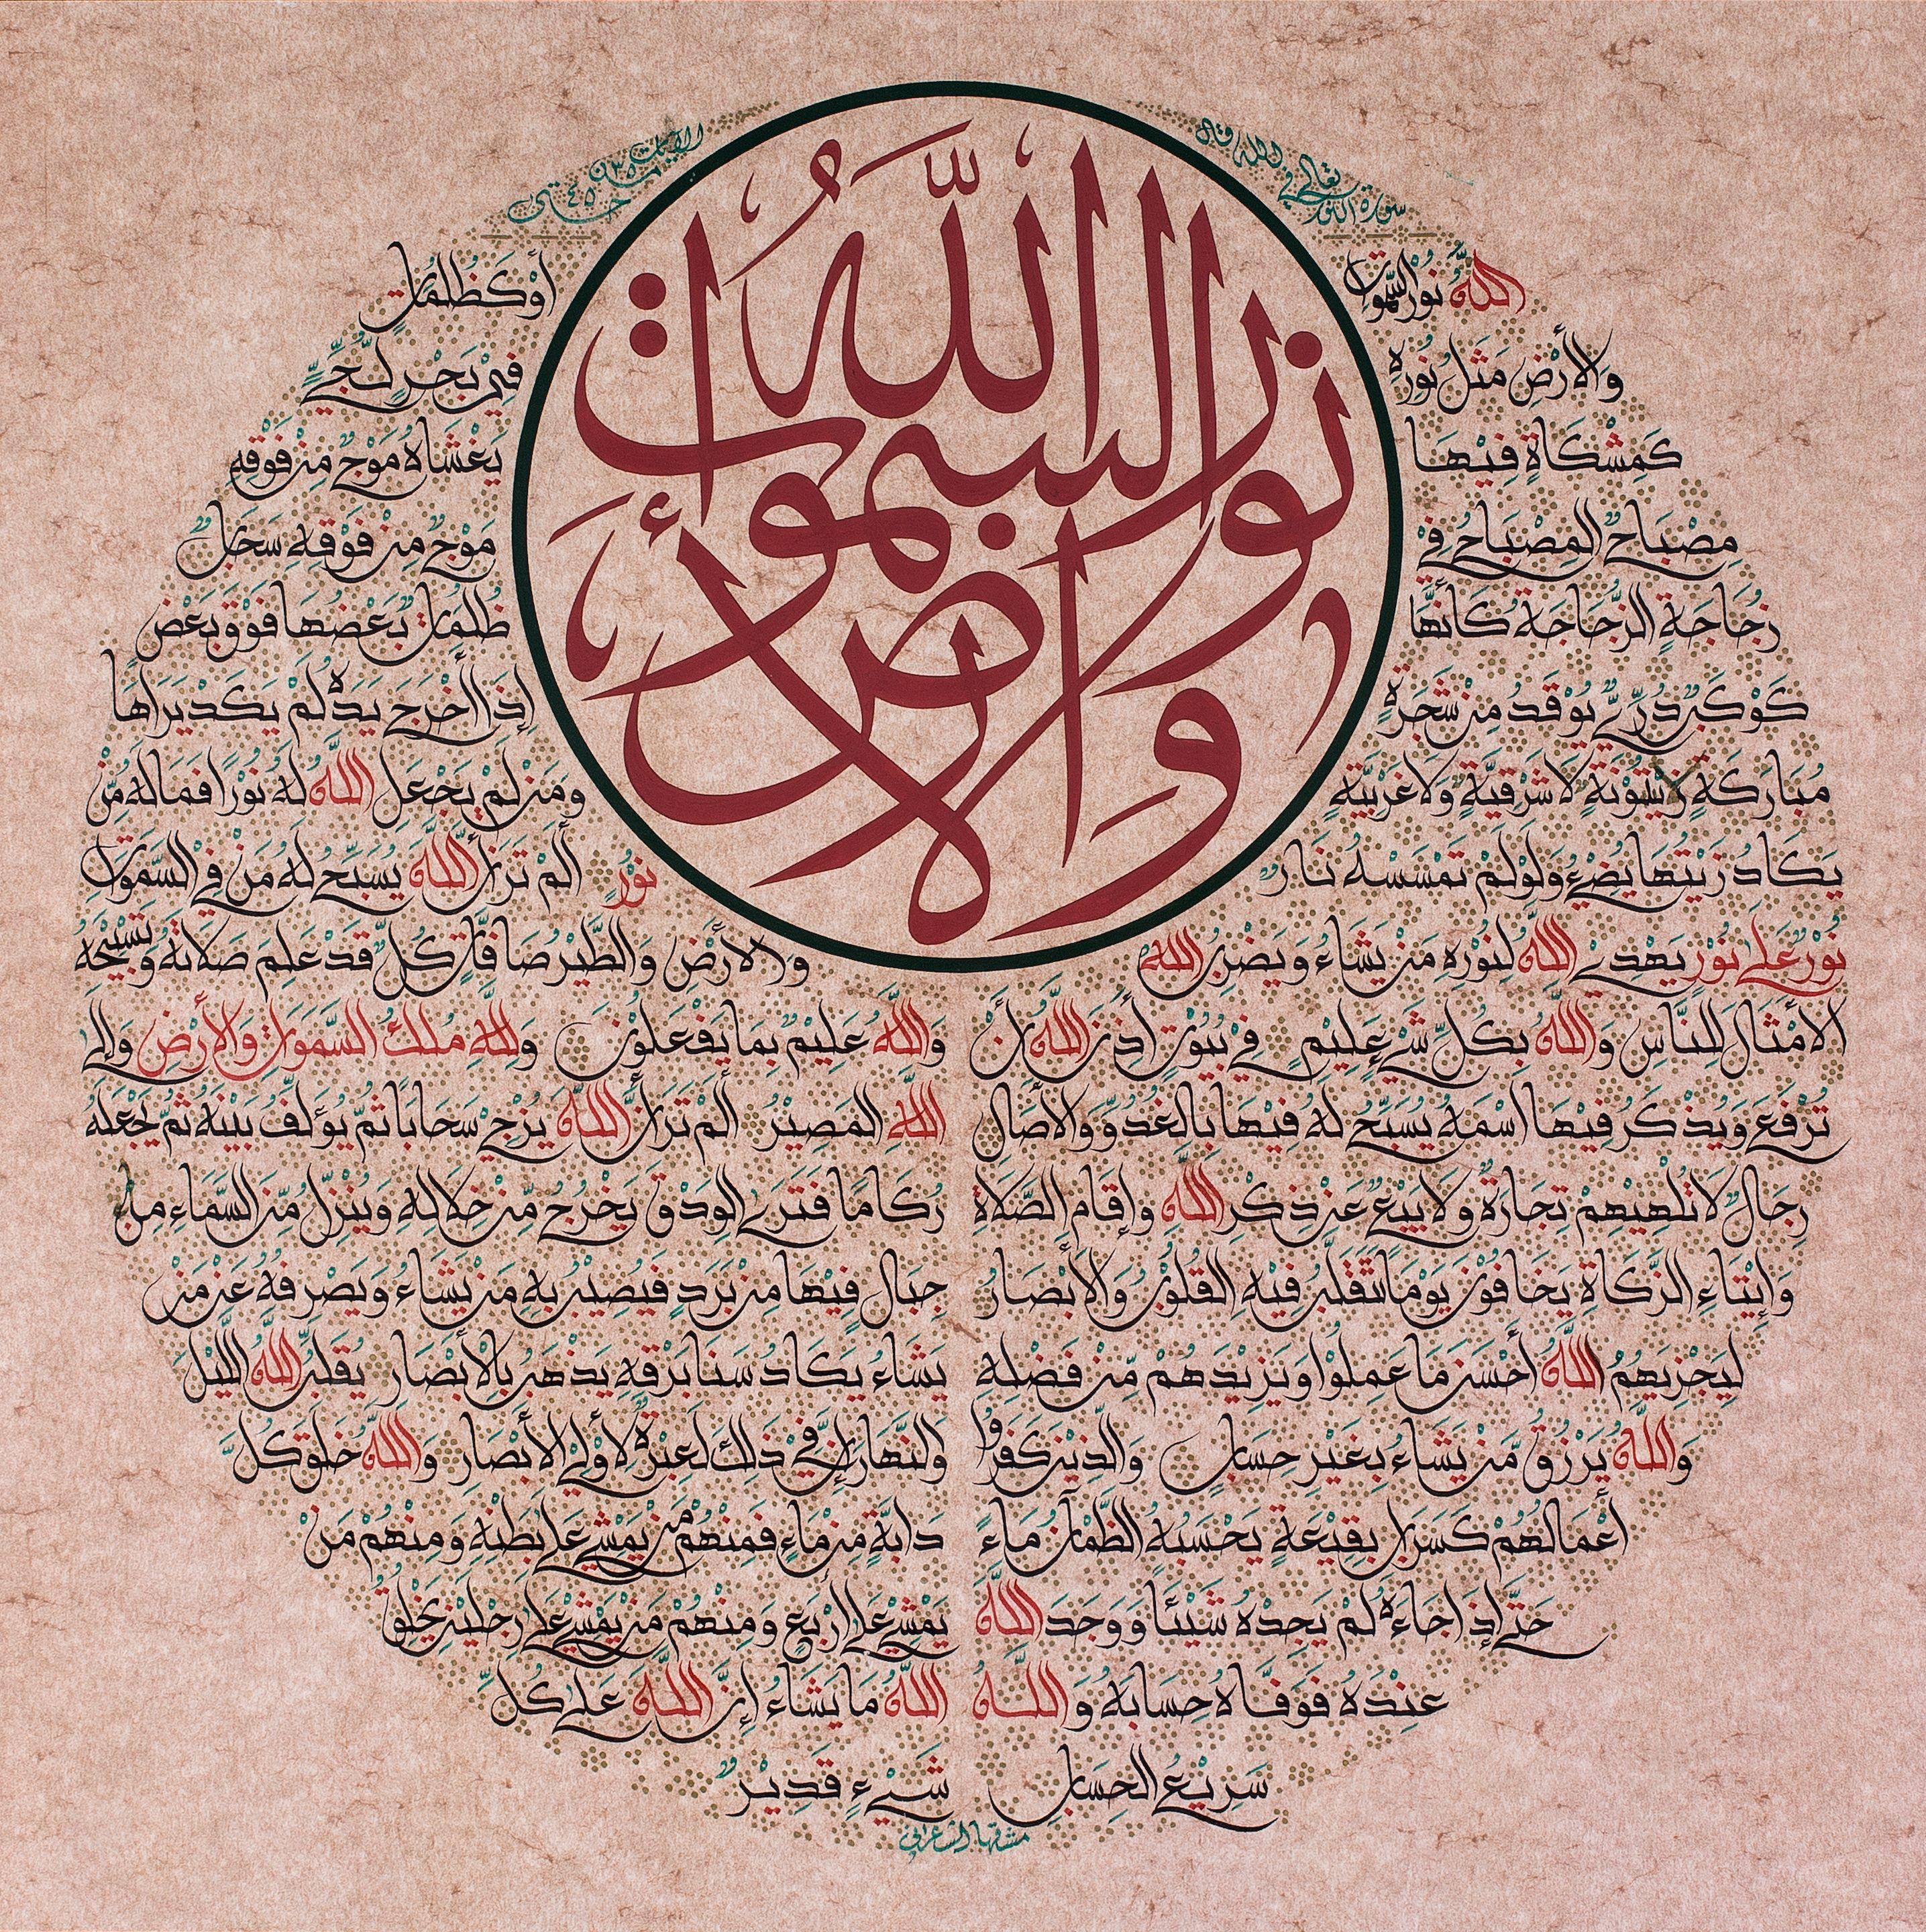 قال الله تعالى في سورة النور
الآيات من ٣٥ حتى ٤٥
الله نور السموات والأرض
اللَّهُ نُورُ السَّمٰوَاتِ
وَالأَرْضِ مَثَلُ نُورِهِ
كَمِشْكَاةٍ فِيْهَا
مِصْبَاحٌ الْمِصْبَاحُ فِيْ
زُجَاجَةٍ الزُّجَاجَةُ كَأَنَّهَا
كَوْكَبٌ دُرِّيٌّ يُوْقَدُ مِنْ شَجَرَةٍ
مُبَارَكَةٍ زَيْتُوْنَةٍ لَا شَرْقِيَّةٍ وَلَا غَرْبِيَّةٍ
يَكَادُ زَيْتُهَا يُضِيْءُ وَلَوْ لَمْ تَمْسَسْهُ نَارٌ
نُوْرٌ عَلَى نُوْرٍ يَهْدِي اللَّهُ لِنُوْرِهِ مَنْ يَشَاءُ وَيَضْرِبُ اللَّهُ
الأَمْثَالَ لِلنَّاسِ وَاللَّهُ بِكُلِّ شَيْءٍ عَلِيْمٌ فِيْ بُيُوْتٍ أَذِنَ اللَّهُ أَنْ
تُرْفَعَ وَيُذْكَرَ فِيْهَا اسْمُهُ يُسَبِّحُ لَهُ فِيْهَا بِالْغُدُوِّ وَالأَصَالِ
رِجَالٌ لَا تُلْهِيْهِمْ تِجَارَةٌ وَلَا بَيْعٌ عَنْ ذِكْرِ اللَّهِ وَإِقَامِ الصَّلَاةِ
وَإِيْتَاءِ الزَّكَاةِ يَخَافُوْنَ يَوْمًا تَتَقَلَّبُ فِيْهِ الْقُلُوْبُ وَالأَبْصَارُ
لِيَجْزِيَهُمُ اللَّهُ أَحْسَنَ مَا عَمِلُوْا وَيَزِيْدَهُمْ مِّنْ فَضْلِهِ
وَاللَّهُ يَرْزُقُ مَنْ يَشَاءُ بِغَيْرِ حِسَابٍ وَالَّذِيْنَ كَفَرُوا
أَعْمَالُهُمْ كَسَرَابٍ بِقِيْعَةٍ يَحْسَبُهُ الظَّمْآنُ مَاءً
حَتَّى إِذَا جَاءَهُ لَمْ يَجِدْهُ شَيْئًا وَوَجَدَ اللَّهَ
عِنْدَهُ فَوَفَّاهُ حِسَابَهُ وَاللَّهُ
سَرِيْعُ الْحِسَابِ
أَوْ كَظُلُمَاتٍ
فِيْ بَحْرٍ لُّجِّيٍّ
يَغْشَاهُ مَوْجٌ مِنْ فَوْقِهِ
مَوْجٌ مِنْ فَوْقِهِ سَحَابٌ
ظُلُمَاتٌ بَعْضُهَا فَوْقَ بَعْضٍ
إِذَا أَخْرَجَ يَدَهُ لَمْ يَكَدْ يَرَاهَا
وَمَنْ لَمْ يَجْعَلِ اللَّهُ لَهُ نُوْرًا فَمَا لَهُ مِنْ
نُوْرٍ أَلَمْ تَرَ أَنَّ اللَّهَ يُسَبِّحُ لَهُ مَنْ فِي السَّمَوَاتِ
وَالأَرْضِ وَالطَّيْرُ صَافَّاتٍ كُلٌّ قَدْ عَلِمَ صَلَاتَهُ وَتَسْبِيْحَهُ
وَاللَّهُ عَلِيْمٌ بِمَا يَفْعَلُوْنَ وَلِلَّهِ مُلْكُ السَّمَوَاتِ وَالأَرْضِ وَإِلَى
اللَّهِ الْمَصِيْرُ أَلَمْ تَرَ أَنَّ اللَّهَ يُزْجِي سَحَابًا ثُمَّ يُؤَلِّفُ بَيْنَهُ ثُمَّ يَجْعَلُهُ
رُكَامًا فَتَرَى الْوَدْقَ يَخْرُجُ مِنْ خِلَالِهِ وَيُنَزِّلُ مِنَ السَّمَاءِ مِنْ
جِبَالٍ فِيْهَا مِنْ بَرَدٍ فَيُصِيْبُ بِهِ مَنْ يَشَاءُ وَيَصْرِفُهُ عَنْ مَنْ
يَشَاءُ يَكَادُ سَنَا بَرْقِهِ يَذْهَبُ بِالأَبْصَارِ يُقَلِّبُ اللَّهُ اللَّيْلَ
وَالنَّهَارَ إِنَّ فِيْ ذَلِكَ لَعِبْرَةً لِأُوْلِي الأَبْصَارِ وَاللَّهُ خَلَقَ كُلَّ
دَابَّةٍ مِنْ مَاءٍ فَمِنْهُمْ مَنْ يَمْشِيْ عَلَى بَطْنِهِ وَمِنْهُمْ مَنْ
يَمْشِيْ عَلَى أَرْبَعٍ وَمِنْهُمْ مَنْ يَمْشِيْ عَلَى رِجْلَيْنِ يَخْلُقُ
اللَّهُ مَا يَشَاءُ إِنَّ اللَّهَ عَلَى كُلِّ
شَيْءٍ قَدِيْرٌ
مشقها